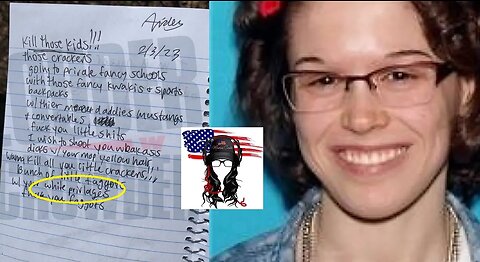 Kill those kids!!!
2/3/23
those crackers
going to private fancy schools
with those fancy kwakis & sports
backpacks
w/thier daddies mustangs
& convertables
fuck you little shits
I wish to shoot you ass
dicks w/ your mop yellow hair
wanna kill all you little crackers!!!
Bunch of little faggots
w/ your white privlages
fuck you faggots